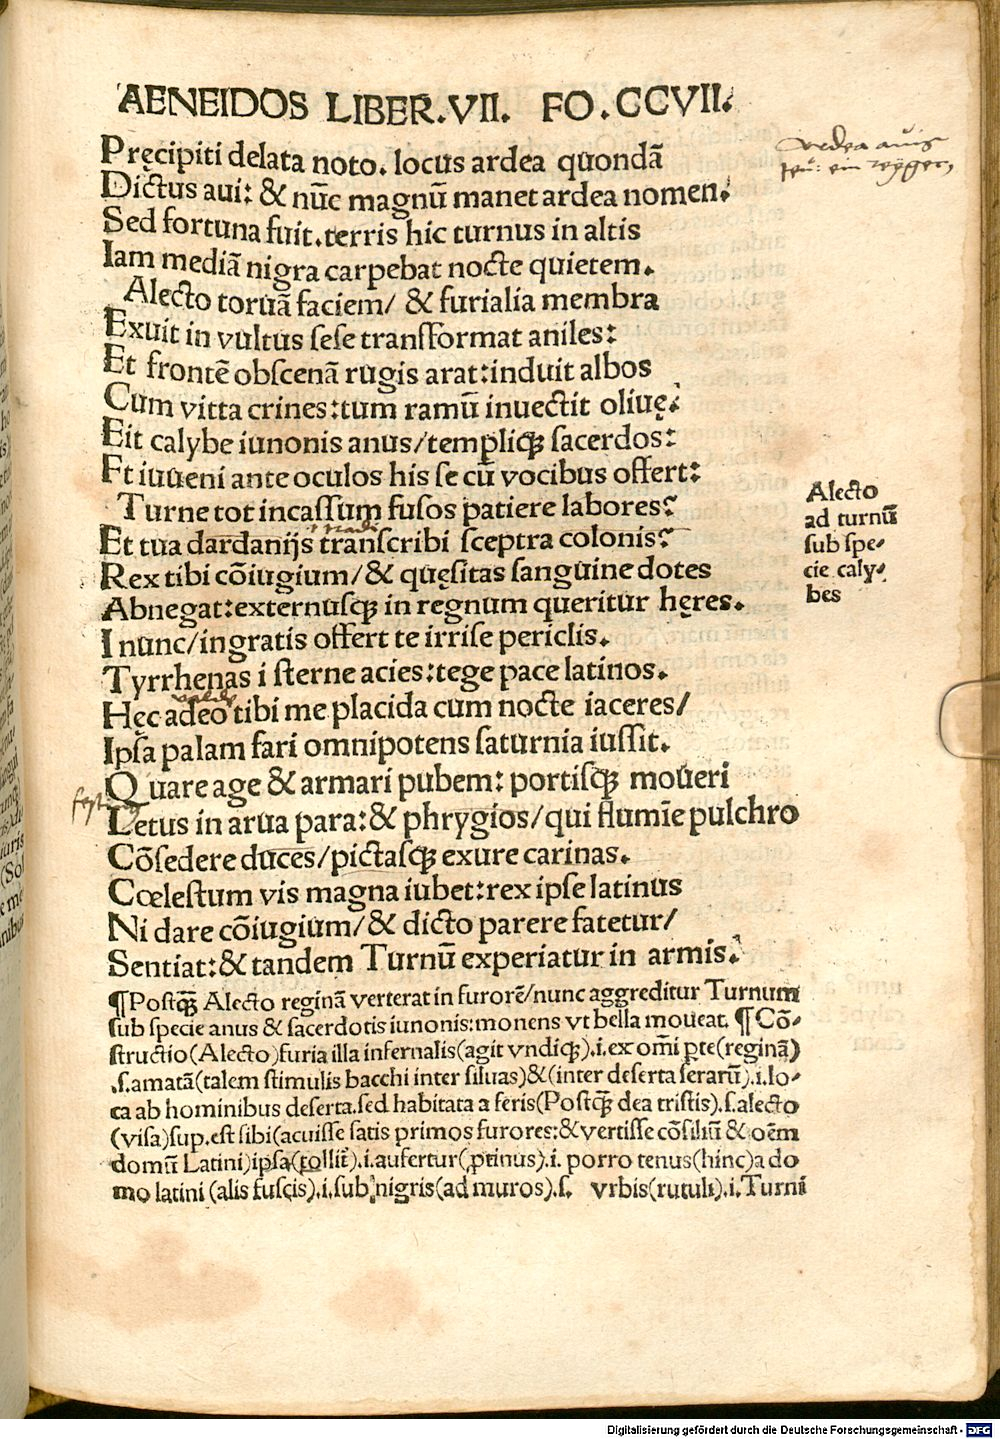 AENEIDOS LIBER.VII. FO.CCVII.
Pręcipiti delata noto. locus ardea quondā
Dictus aui: & nūc magnū manet ardea nomen.
Sed fortuna fuit.terris hic turnus in altis
Iam mediā nigra carpebat nocte quietem.
Alecto toruā faciem/ & furialia membra
Exuit in vultus sese transformat aniles:
Et frontē obscenā rugis arat:induit albos
Cum vitta crines:tum ramū inuectit oliuę.
Eit calybe iunonis anus/templiqꝫ sacerdos:
Et iuueni ante oculos his se cū vocibus offert:
Turne tot incassum fusos patiere labores?
Et tua dardanijs transcribi sceptra colonis?
Rex tibi cōiugium/& quęsitas sanguine dotes
Abnegat:externusqꝫ in regnum queritur hęres.
I nunc/ingratis offert te irrise periclis.
Tyrrhenas i sterne acies:tege pace latinos.
Hęc adeo tibi me placida cum nocte iaceres/
Ipsa palam fari omnipotens saturnia iussit.
Quare age & armari pubem: portisqꝫ moueri
Letus in arua para:& phrygios/qui flumīe pulchro
Cōsedere duces/pictasqꝫ exure carinas.
Cœlestum vis magna iubet:rex ipse latinus
Ni dare cōiugium/& dicto parere fatetur/
Sentiat:& tandem Turnū experiatur in armis.
¶Postqꝫ̄ Alecto reginā verterat in furorē/nunc aggreditur Turnum
sub specie anus & sacerdotis iunonis:monens vt bella moueat. ¶Cō-
structio(Alecto)furia illa infernalis(agit vndiqꝫ).i.ex om̄i ꝑte(reginā)
.s.amatā(talem stimulis bacchi inter siluas)&(inter deserta ferarū).i.lo-
ca ab hominibus deserta.sed habitata a feris(Postqꝫ̄ dea tristis).s.alecto
(visa)sup.est sibi(acuisse satis primos furores:&vertisse cōsiliū & oēm
domū Latini)ipsa(tollit̄).i.aufertur(ꝓtinus).i. porro tenus(hinc)a do
mo latini (alis fuscis).i.sub nigris(ad muros).s. vrbis(rutuli).i.Turni
ardea avis
Alecto
ad turnū
sub spe-
cie caly-
bes